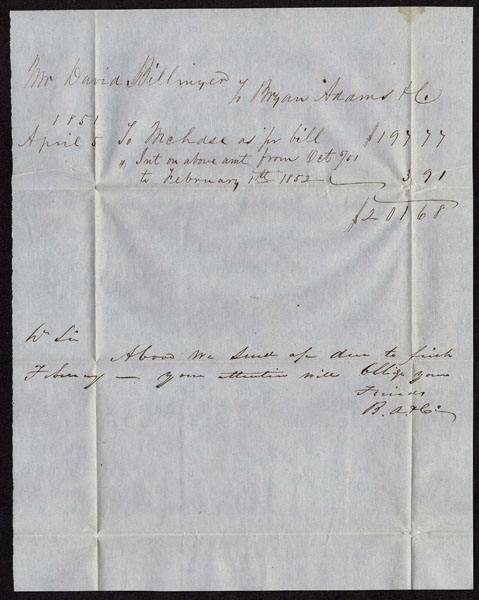 Mr David Billmyer
To Bryan Adams & Co.
1851
April 5 To Mchdse as pr bill $197 77
" Int on above amt from Oct 5/51
to February 1st 1852 3 91
$201 68
Dr Sir
Above we send a/c due to first
February — your attention will Oblige your
Friends
B. A. & Co.